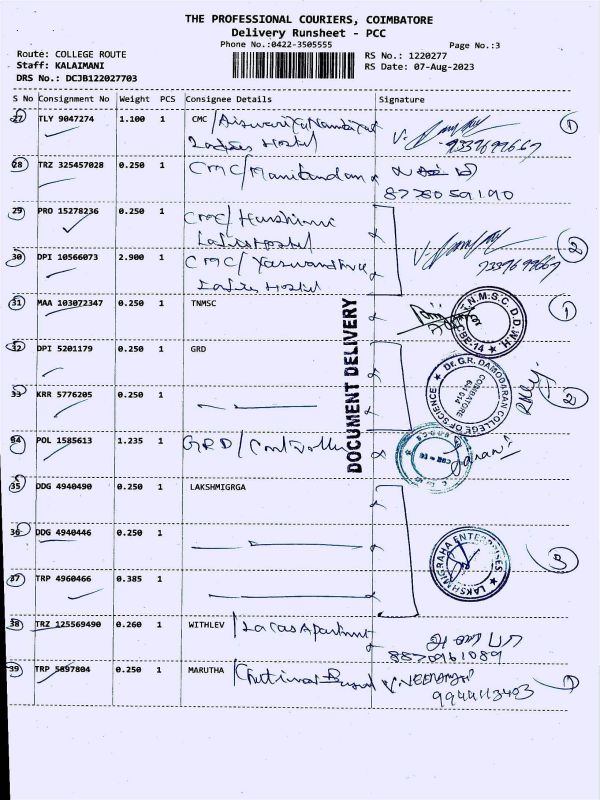 THE PROFESSIONAL COURIERS, COIMBATORE
Delivery Runsheet - PCC
Phone No.:0422-3505555 Page No.:3
Route: COLLEGE ROUTE RS No.: 1220277
Staff: KALAIMANI RS Date: 07-Aug-2023
DRS No.: DCJB122027703
S No Consignment No Weight PCS Consignee Details Signature
27 TLY 9047274 1.100 1 CMC / Ladies Hostel
28 TRZ 325457028 0.250 1 CMC/Manikandan
8778059190
29 PRO 15278236 0.250 1 CMC/ Harshini
Ladies Hostel
30 DPI 10566073 2.900 1 CMC/
Ladies Hostel
31 MAA 103072347 0.250 1 TNMSC
T.N.M.S.C. D.D.W.H. CBE-14
DOCUMENT DELIVERY
32 DPI 5201179 0.250 1 GRD
Dr. G.R. DAMODARAN COLLEGE OF SCIENCE COIMBATORE 641 014
33 KRR 5776205 0.250 1
34 POL 1585613 1.235 1 GRD/Controller
35 DDG 4940490 0.250 1 LAKSHMIGRGA
36 DDG 4940446 0.250 1
LAKSHMIGRAHA ENTERPRISES
37 TRP 4960466 0.385 1
38 TRZ 125569490 0.260 1 WITHLEV / Lacas Apartment
8870961089
39 TRP 5897804 0.250 1 MARUTHA /
9944113493